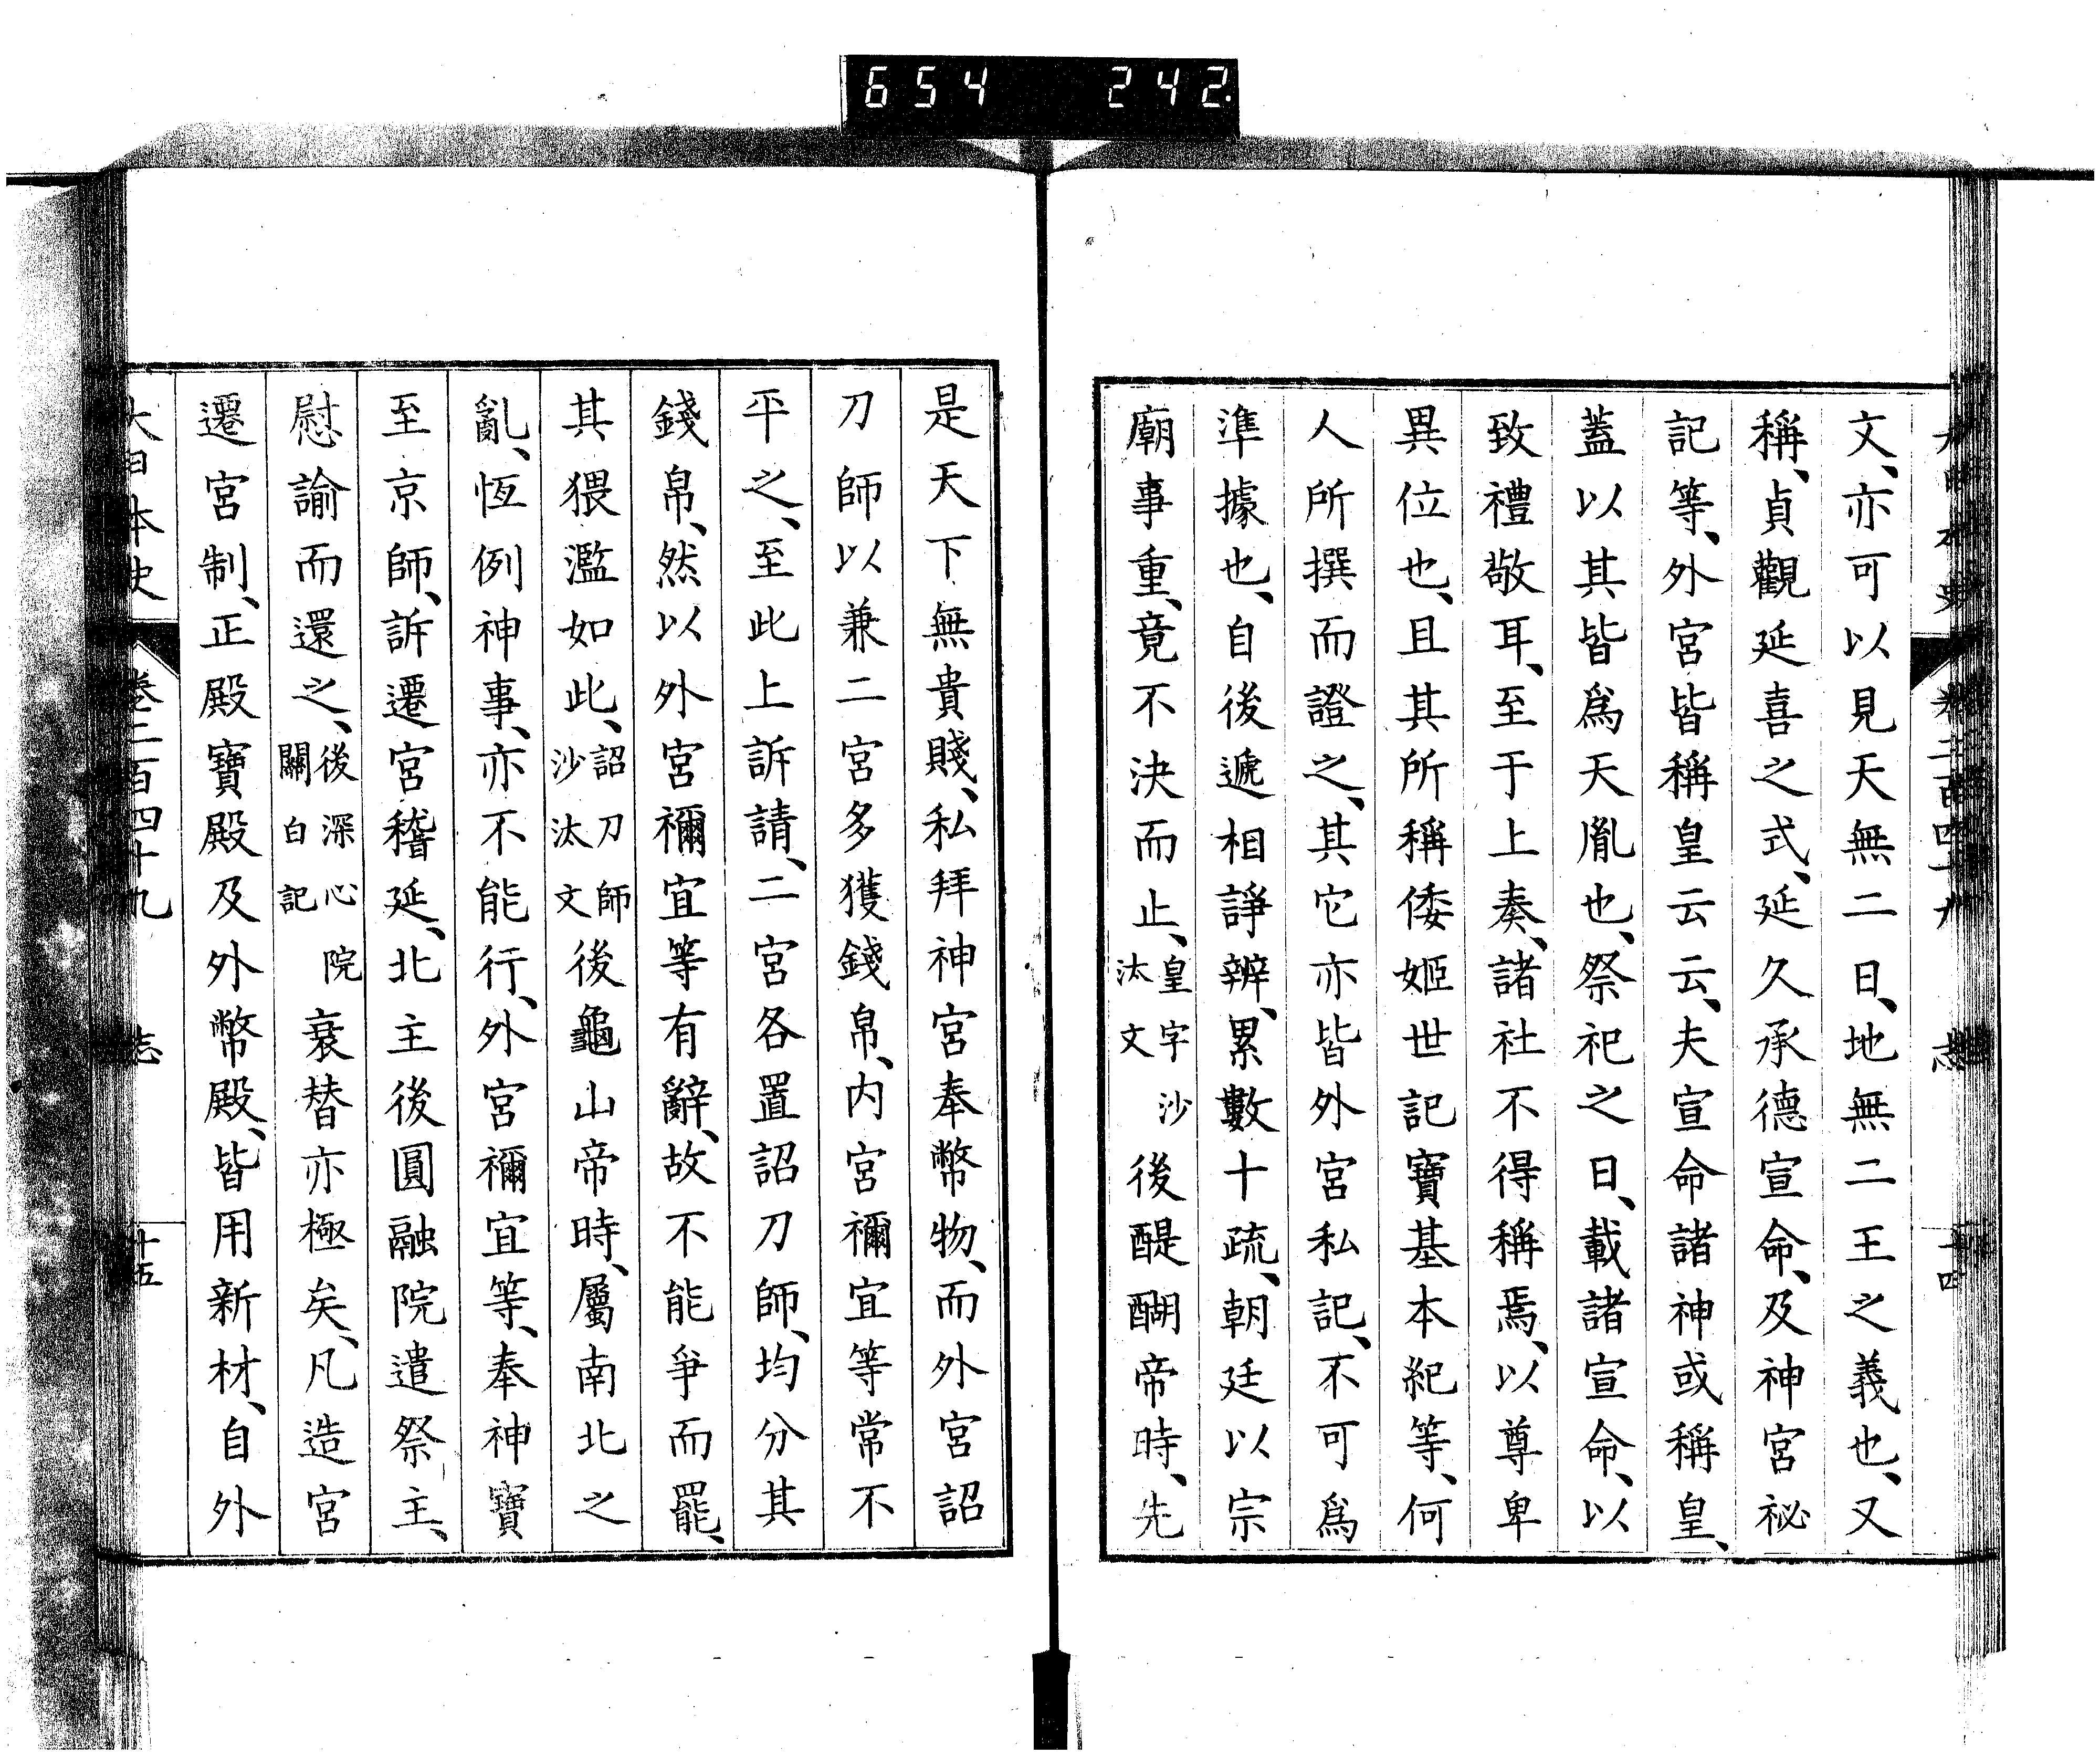 654 242.
大日本史 卷二百四十九 志 十四
文、亦可以見天無二日、地無二王之義也、又
稱、貞觀延喜之式、延久承德宣命、及神宮祕
記等、外宮皆稱皇云云、夫宣命諸神或稱皇、
蓋以其皆爲天胤也、祭祀之日、載諸宣命、以
致禮敬耳、至于上奏、諸社不得稱焉、以尊卑
異位也、且其所稱倭姬世記寶基本紀等、何
人所撰而證之、其它亦皆外宮私記、不可爲
準據也、自後遞相諍辨、累數十疏、朝廷以宗
廟事重、竟不決而止、皇字沙汰文後醍醐帝時、先
是天下無貴賤、私拜神宮奉幣物、而外宮詔
刀師以兼二宮多獲錢帛、內宮禰宜等常不
平之、至此上訴請、二宮各置詔刀師、均分其
錢帛、然以外宮禰宜等有辭、故不能爭而罷、
其猥濫如此、詔刀師沙汰文後龜山帝時、屬南北之
亂、恆例神事、亦不能行、外宮禰宜等、奉神寶
至京師、訴遷宮稽延、北主後圓融院遣祭主、
慰諭而還之、後深心院關白記衰替亦極矣、凡造宮
遷宮制、正殿寶殿及外幣殿、皆用新材、自外
大日本史 卷二百四十九 志 十五